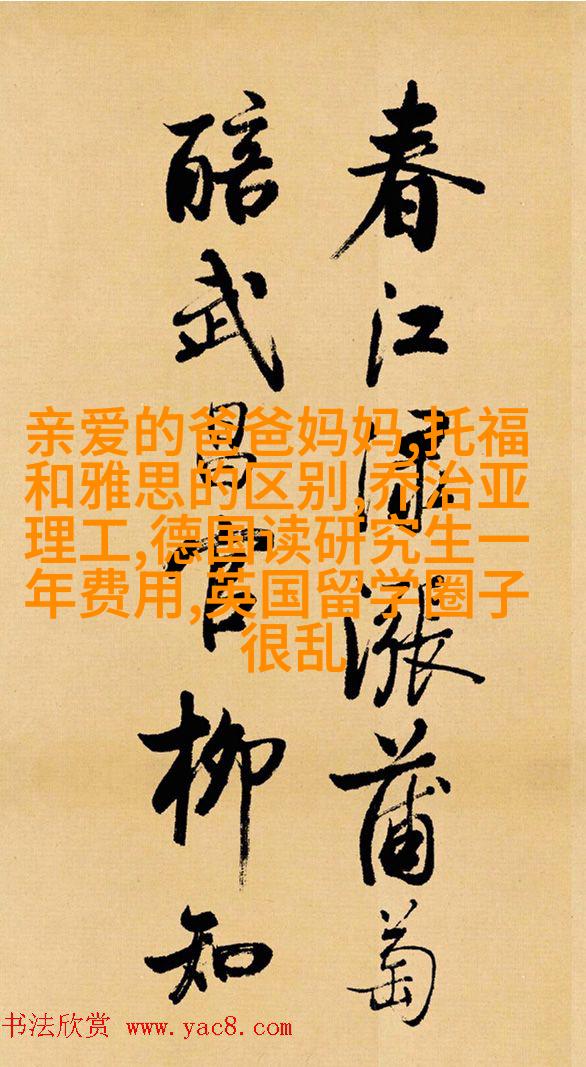 春江渌涨蒲萄
醅武昌官柳知
亲爱的爸爸妈妈,托福
和雅思的区别,乔治亚
理工,德国读研究生一
年费用,英国留学圈子
很乱
书法欣赏 www.yac8.com